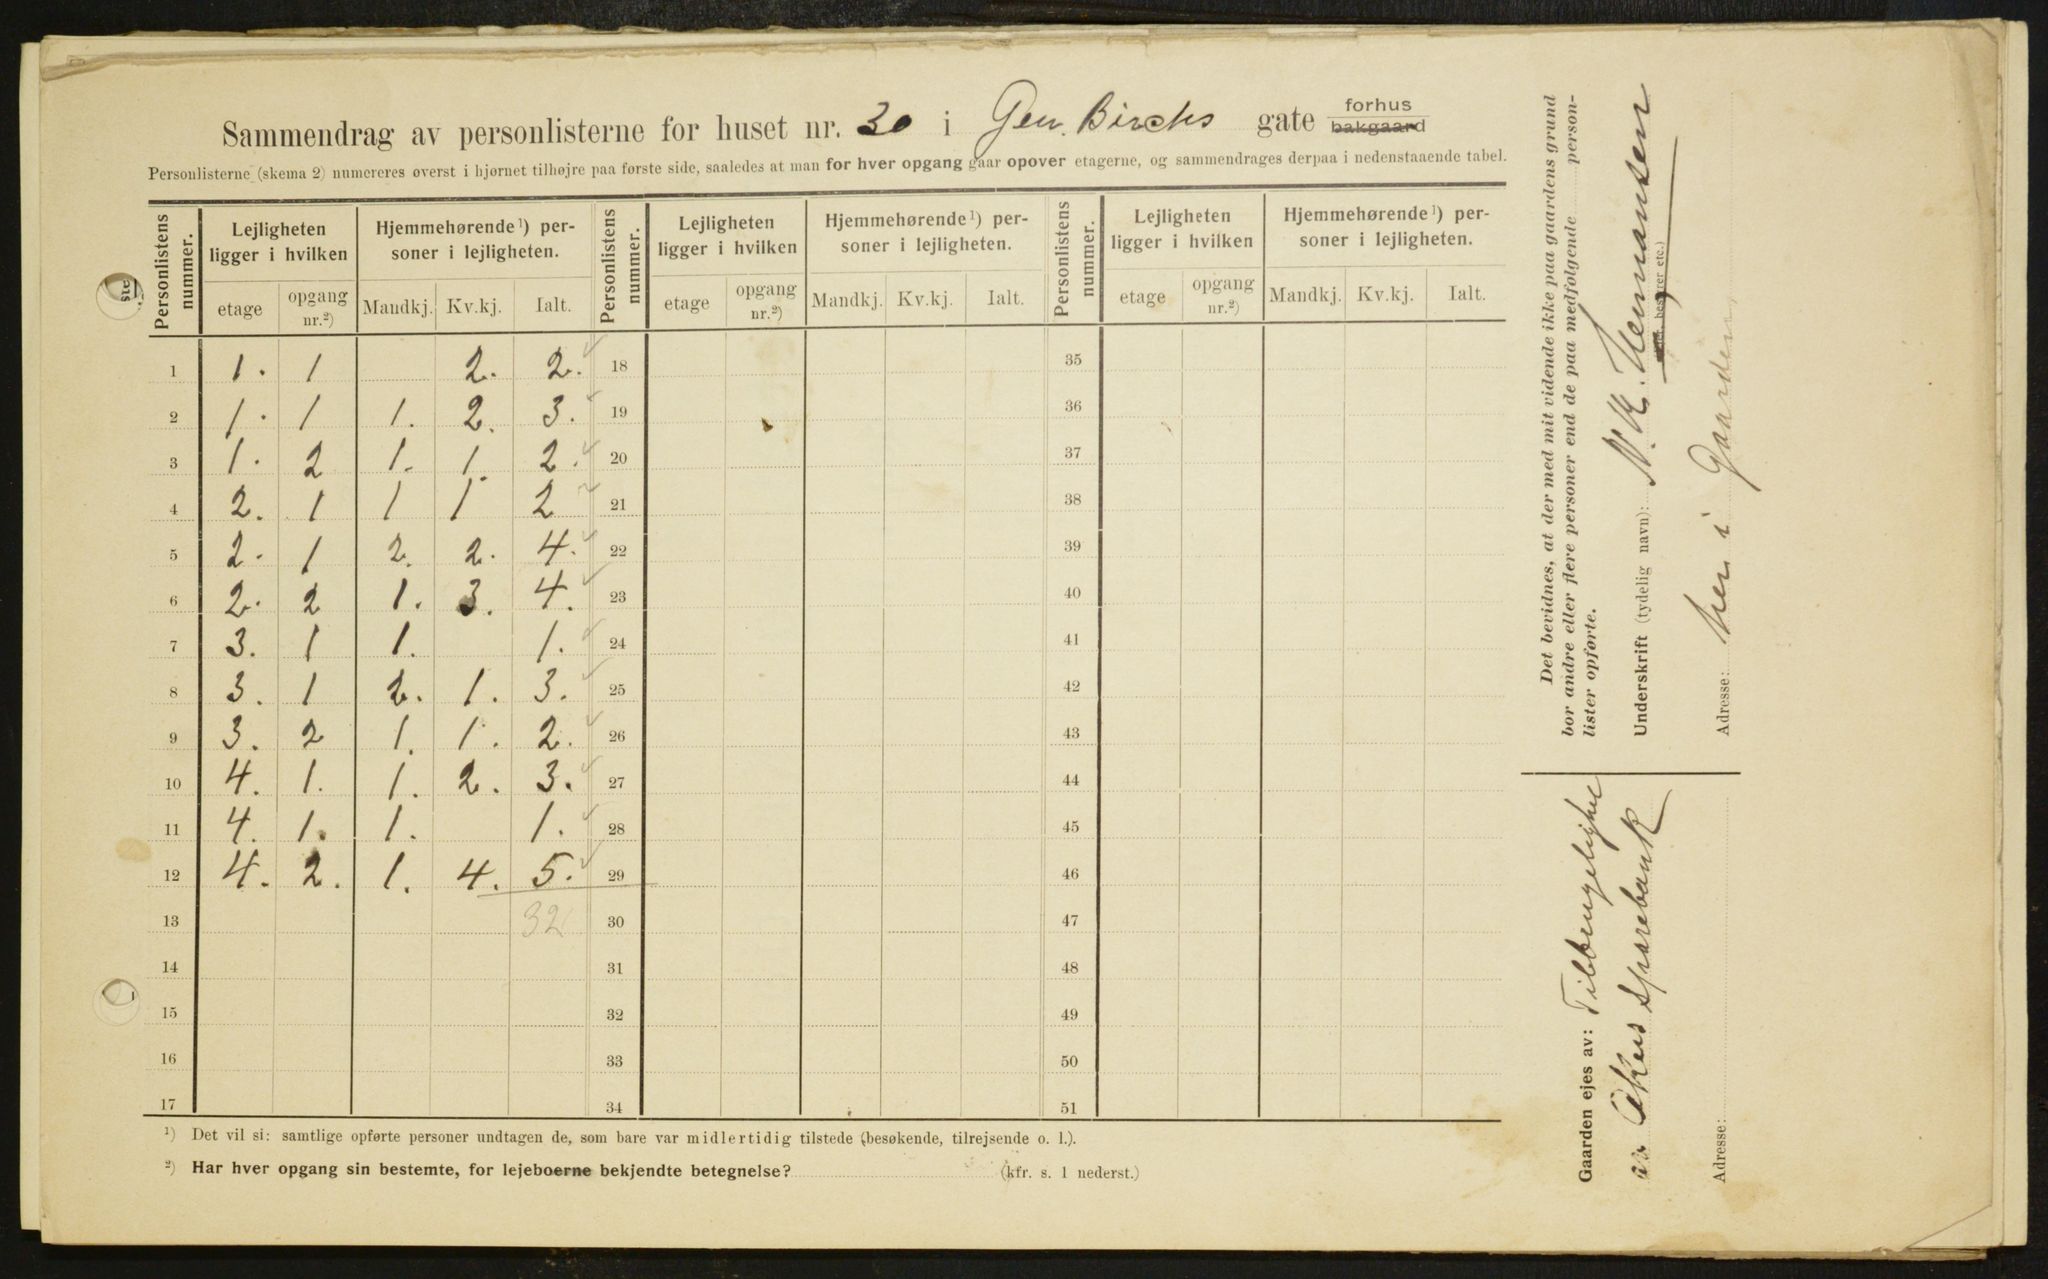 Sammendrag av personlisterne for huset nr. 30 i Gen. Birchs gate forhus bakgaard
Personlisterne (skema 2) numereres øverst i hjørnet tilhøjre paa første side, saaledes at man for hver opgang gaar opover etagerne, og sammendrages derpaa i nedenstaaende tabel.
Personlistens nummer. Lejligheten ligger i hvilken Hjemmehørende¹) personer i lejligheten. Personlistens nummer. Lejligheten ligger i hvilken Hjemmehørende¹) personer i lejligheten. Personlistens nummer. Lejligheten ligger i hvilken Hjemmehørende¹) personer i lejligheten.
etage opgang nr.²) Mandkj. Kv.kj. Ialt. etage opgang nr.²) Mandkj. Kv.kj. Ialt. etage opgang nr.²) Mandkj. Kv.kj. Ialt.
1 1. 1 2. 2. 18 35
2 1. 1 1. 2. 3. 19 36
3 1. 2 1. 1. 2. 20 37
4 2. 1 1 1 2 21 38
5 2. 1 2. 2. 4. 22 39
6 2. 2 1. 3. 4. 23 40
7 3. 1 1. 1. 24 41
8 3. 1 2. 1. 3. 25 42
9 3. 2 1. 1. 2. 26 43
10 4. 1. 1. 2. 3. 27 44
11 4. 1. 1. 1. 28 45
12 4. 2. 1. 4. 5. 29 46
13 32 30 47
14 31 48
15 32 49
16 33 50
17 34 51
¹) Det vil si: samtlige opførte personer undtagen de, som bare var midlertidig tilstede (besøkende, tilrejsende o. l.).
²) Har hver opgang sin bestemte, for lejeboerne bekjendte betegnelse? (kfr. s. 1 nederst.)
Det bevidnes, at der med mit vidende ikke paa gaardens grund
bor andre eller flere personer end de paa medfølgende personlister opførte.
Underskrift (tydelig navn): N. K. Hermansen
bestyrer etc.)
Adresse: her i Gaarden
Gaarden ejes av:
Akers Sparebank
Adresse: